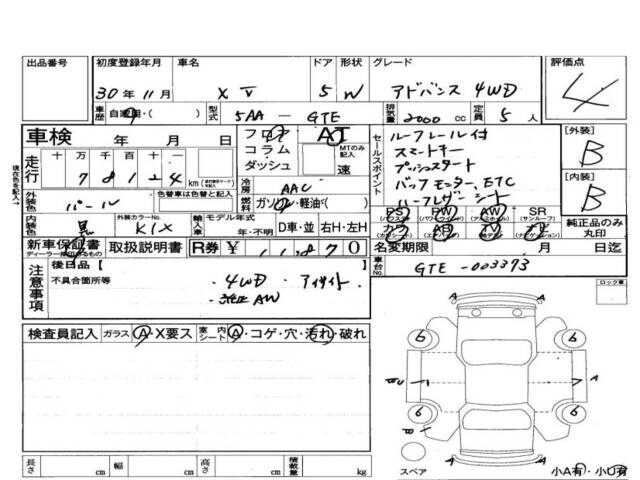 出品番号
初度登録年月 車名 ドア 形状 グレード 評価点
30年11月 XV 5 W アドバンス 4WD 4
車歴 自家用・( ) 型式 5AA - GTE 排気量 2000 cc 定員 5 人
車検 年 月 日 フロア AT
コラム MTのみ記入
ダッシュ 速
走行 十 万 千 百 十 一
7 8 1 2 4 km
冷房 AAC
燃料 ガソリン・軽油・( )
現在色を記入→
外装色 パール 色替車は色替前色→
内装色 黒 外装カラーNo. K1X 輸入車 モデル年式 年・不明 D車・並 右H・左H
新車保証書 取扱説明書 R券 ¥ 11,870
ディーラー
セールスポイント
ルーフレール付
スマートキー
プッシュスタート
ETC
ハーフレザーシート
PS PW AW SR
(サンルーフ)
純正品のみ丸印
名変期限 月 日迄
車台No. GTE - 003373
[外装]
B
[内装]
B
注意事項 後日品【
不具合箇所等
・4WD ・アイサイト
AW
検査員記入 ガラス A・X要ス 室内シート A・コゲ・穴・汚れ・破れ
ロック車
A A
6 6
A
6 6
A A
スペア
小A有・小U有
長さ cm 幅 cm 高さ cm 積載量 kg